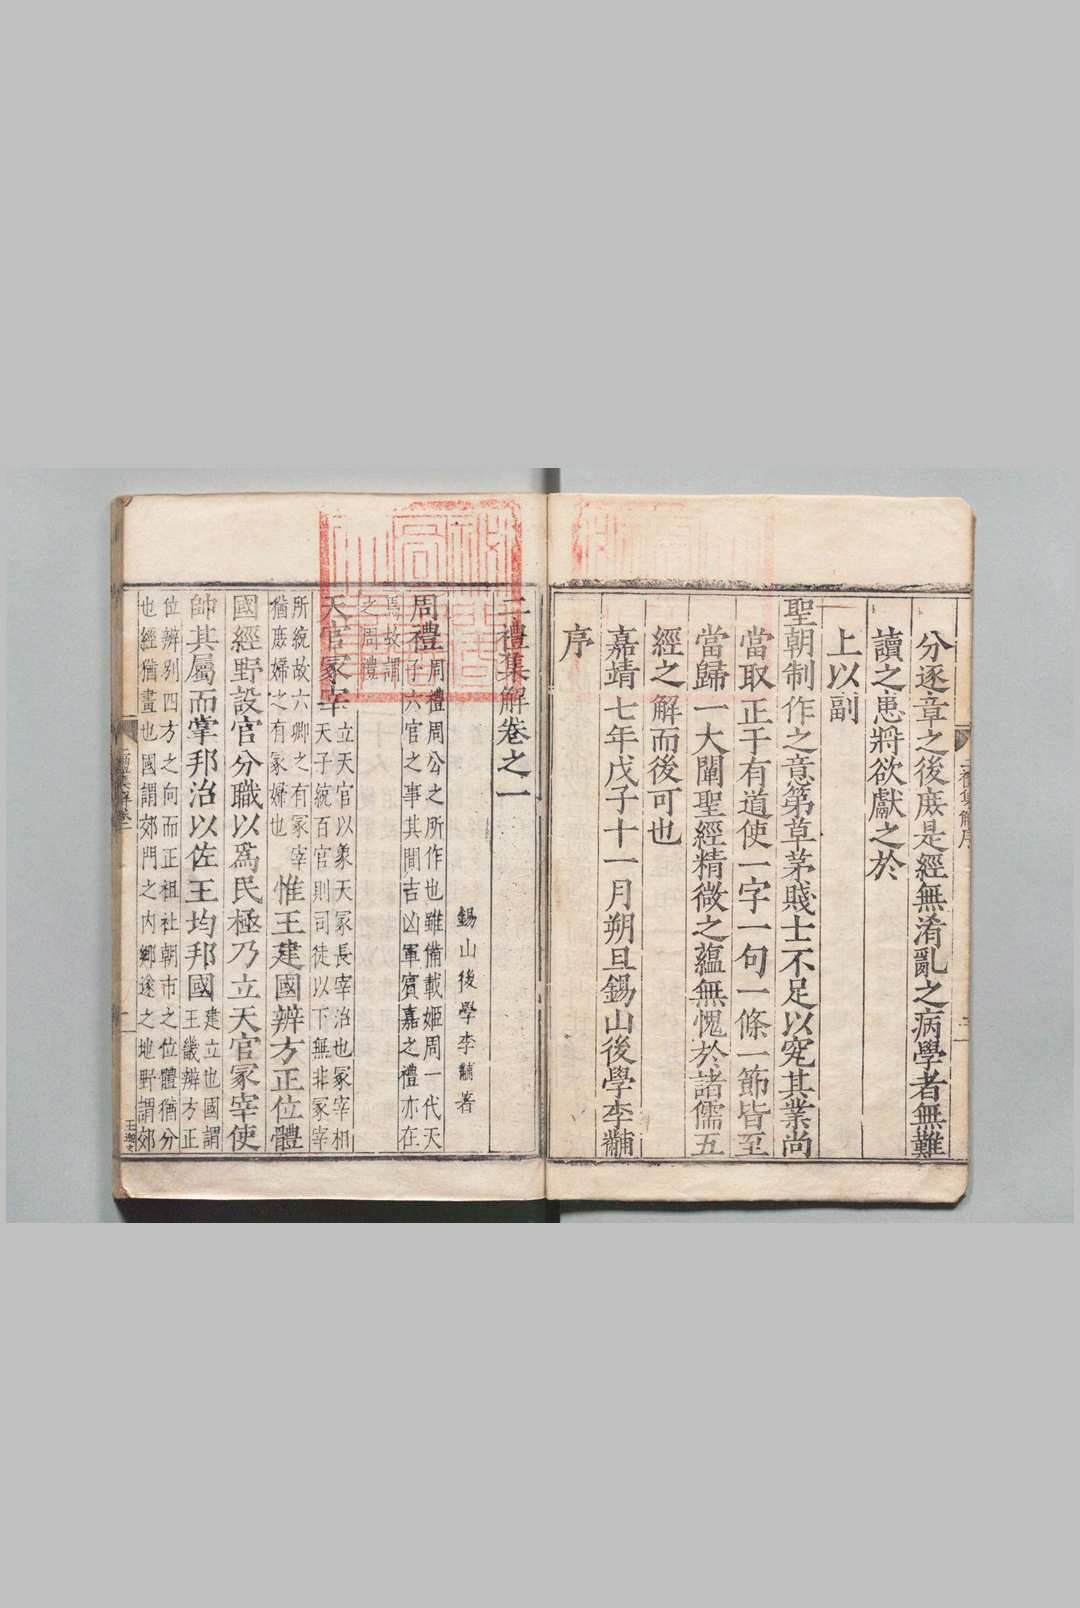 分逐章之後庻是經無淆亂之病學者無難
讀之患將欲獻之於
上以副
聖朝制作之意第草茅賤士不足以究其業尚
當取正于有道使一字一句一條一節皆至
當歸一大闡聖經精微之蘊無愧於諸儒五
經之解而後可也
嘉靖七年戊子十一月朔旦錫山後學李黼
序
二禮集解序
二禮集解卷之一
錫山後學李黼著
周禮
周禮周公之所作也雖備載姬周一代天
子六官之事其間吉凶軍賓嘉之禮亦在
焉故謂
之周禮
天官冢宰
立天官以象天冢長宰治也冢宰相
天子統百官則司徒以下無非冢宰
所統故六卿之有冢宰
猶庻婦之有冢婦也
惟王建國辨方正位體
國經野設官分職以為民極乃立天官冢宰使
帥其屬而掌邦治以佐王均邦國
建立也國謂
王畿辨方正
位辨別四方之向而正祖社朝市之位體猶分
也經猶畫也國謂郊門之內鄉遂之地野謂郊
二禮集解卷一